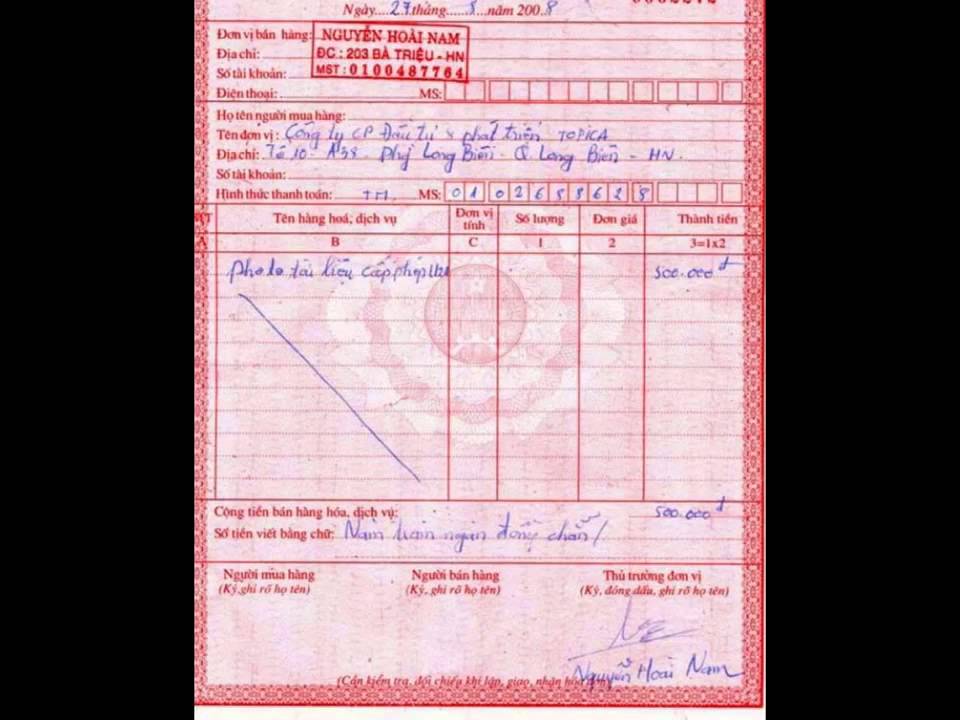 Ngày....27.tháng......8...năm 2008
Đơn vị bán hàng: NGUYỄN HOÀI NAM
Địa chỉ: ĐC : 203 BÀ TRIỆU - HN
Số tài khoản: MST : 0100487764
Điện thoại: MS:
Họ tên người mua hàng:
Tên đơn vị : Công ty CP Đầu tư & phát triển TOPICA
Địa chỉ: Tổ 10 - A38 - Long Biên - Q Long Biên - HN.
Số tài khoản:
Hình thức thanh toán: TM. MS: 01 026
Tên hàng hoá, dịch vụ Đơn vị tính Số lượng Đơn giá Thành tiền
A B C 1 2 3=1x2
photo tài liệu cấp phép 500.000đ
Cộng tiền bán hàng hóa, dịch vụ: 500.000đ
Số tiền viết bằng chữ: Năm trăm ngàn đồng chẵn/
Người mua hàng Người bán hàng Thủ trưởng đơn vị
(Ký, ghi rõ họ tên) (Ký, ghi rõ họ tên) (Ký, đóng dấu, ghi rõ họ tên)
Nguyễn Hoài Nam
(Cần kiểm tra, đối chiếu khi lập, giao, nhận